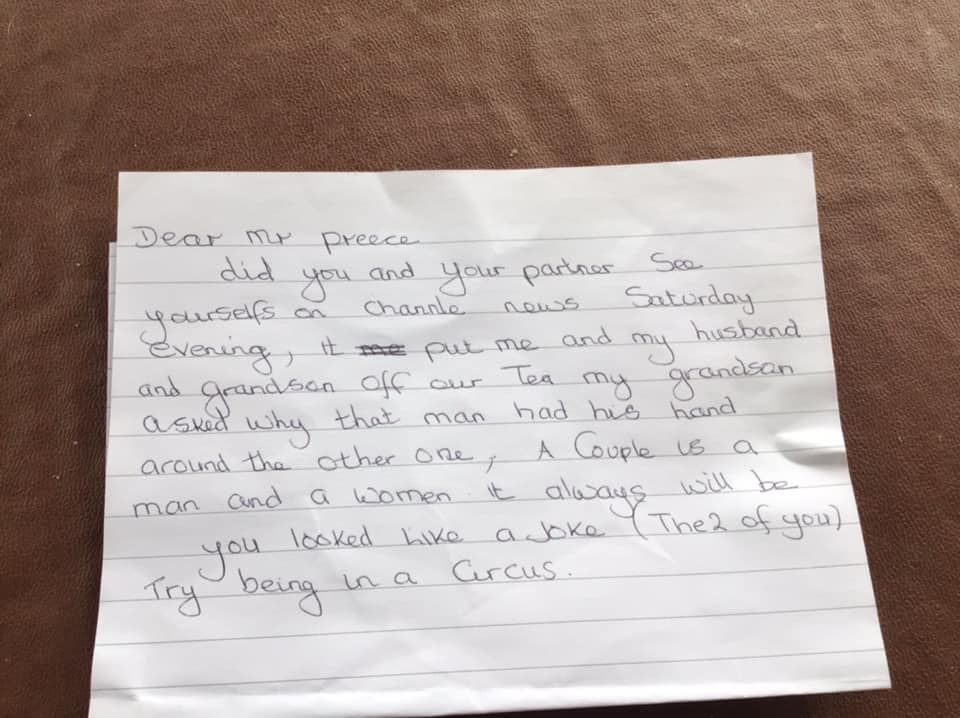 Dear Mr preece
did you and your partner See
yourselfs on Channle news Saturday
evening, it me put me and my husband
and grandson off our Tea my grandson
asked why that man had his hand
around the other one, A Couple is a
man and a women it always will be
you looked like a Joke (The 2 of you)
Try being in a Circus.